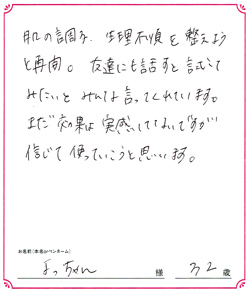 肌の調子、生理不順を整えよう
と再開。友達にも話すと試して
みたいとみんな言ってくれています。
まだ効果は実感してないですが
信じて使っていこうと思います。
お名前(本名orペンネーム)
よっちゃん 様 32歳